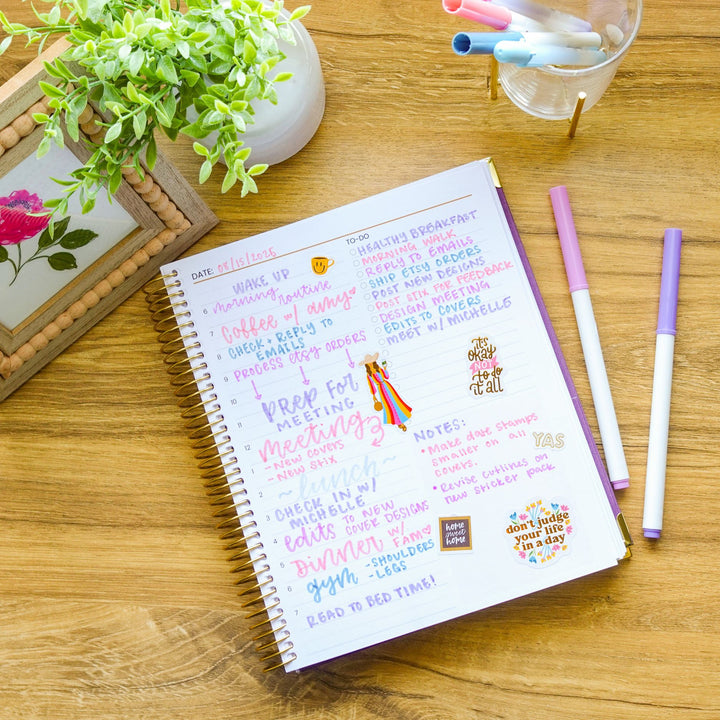 DATE: 08/15/2025
WAKE UP
6 morning routine
7 Coffee w/ amy
8 CHECK + REPLY TO
EMAILS
9 PROCESS ETSY ORDERS
10
11 PREP FOR
MEETING
12 Meeting
1 - NEW COVERS
- NEW STIX
2 ~ lunch ~
3 CHECK IN W/
MICHELLE
4 edits TO NEW
COVER DESIGNS
5 Dinner W/ FAM
6 gym - SHOULDERS
- LEGS
7 READ TO BED TIME!
TO-DO
HEALTHY BREAKFAST
MORNING WALK
REPLY TO EMAILS
SHIP ETSY ORDERS
POST NEW DESIGNS
POST STIX FOR FEEDBACK
DESIGN MEETING
EDITS TO COVERS
MEET W/ MICHELLE
it's
okay
NOT
to do
it all
NOTES:
• Make date stamps
smaller on all
covers.
• Revise cutlines on
new sticker pack
YAS
home
sweet
home
don't judge
your life
in a day